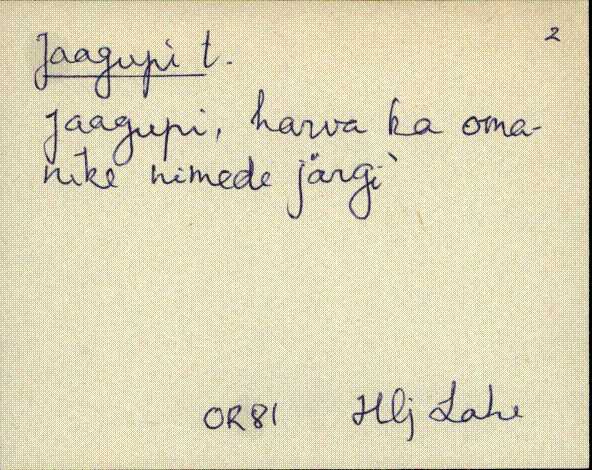 2
Jaagupi t.
Jaagupi, harva ka oma-
nike nimede järgi
OR81 Hlj Lahe